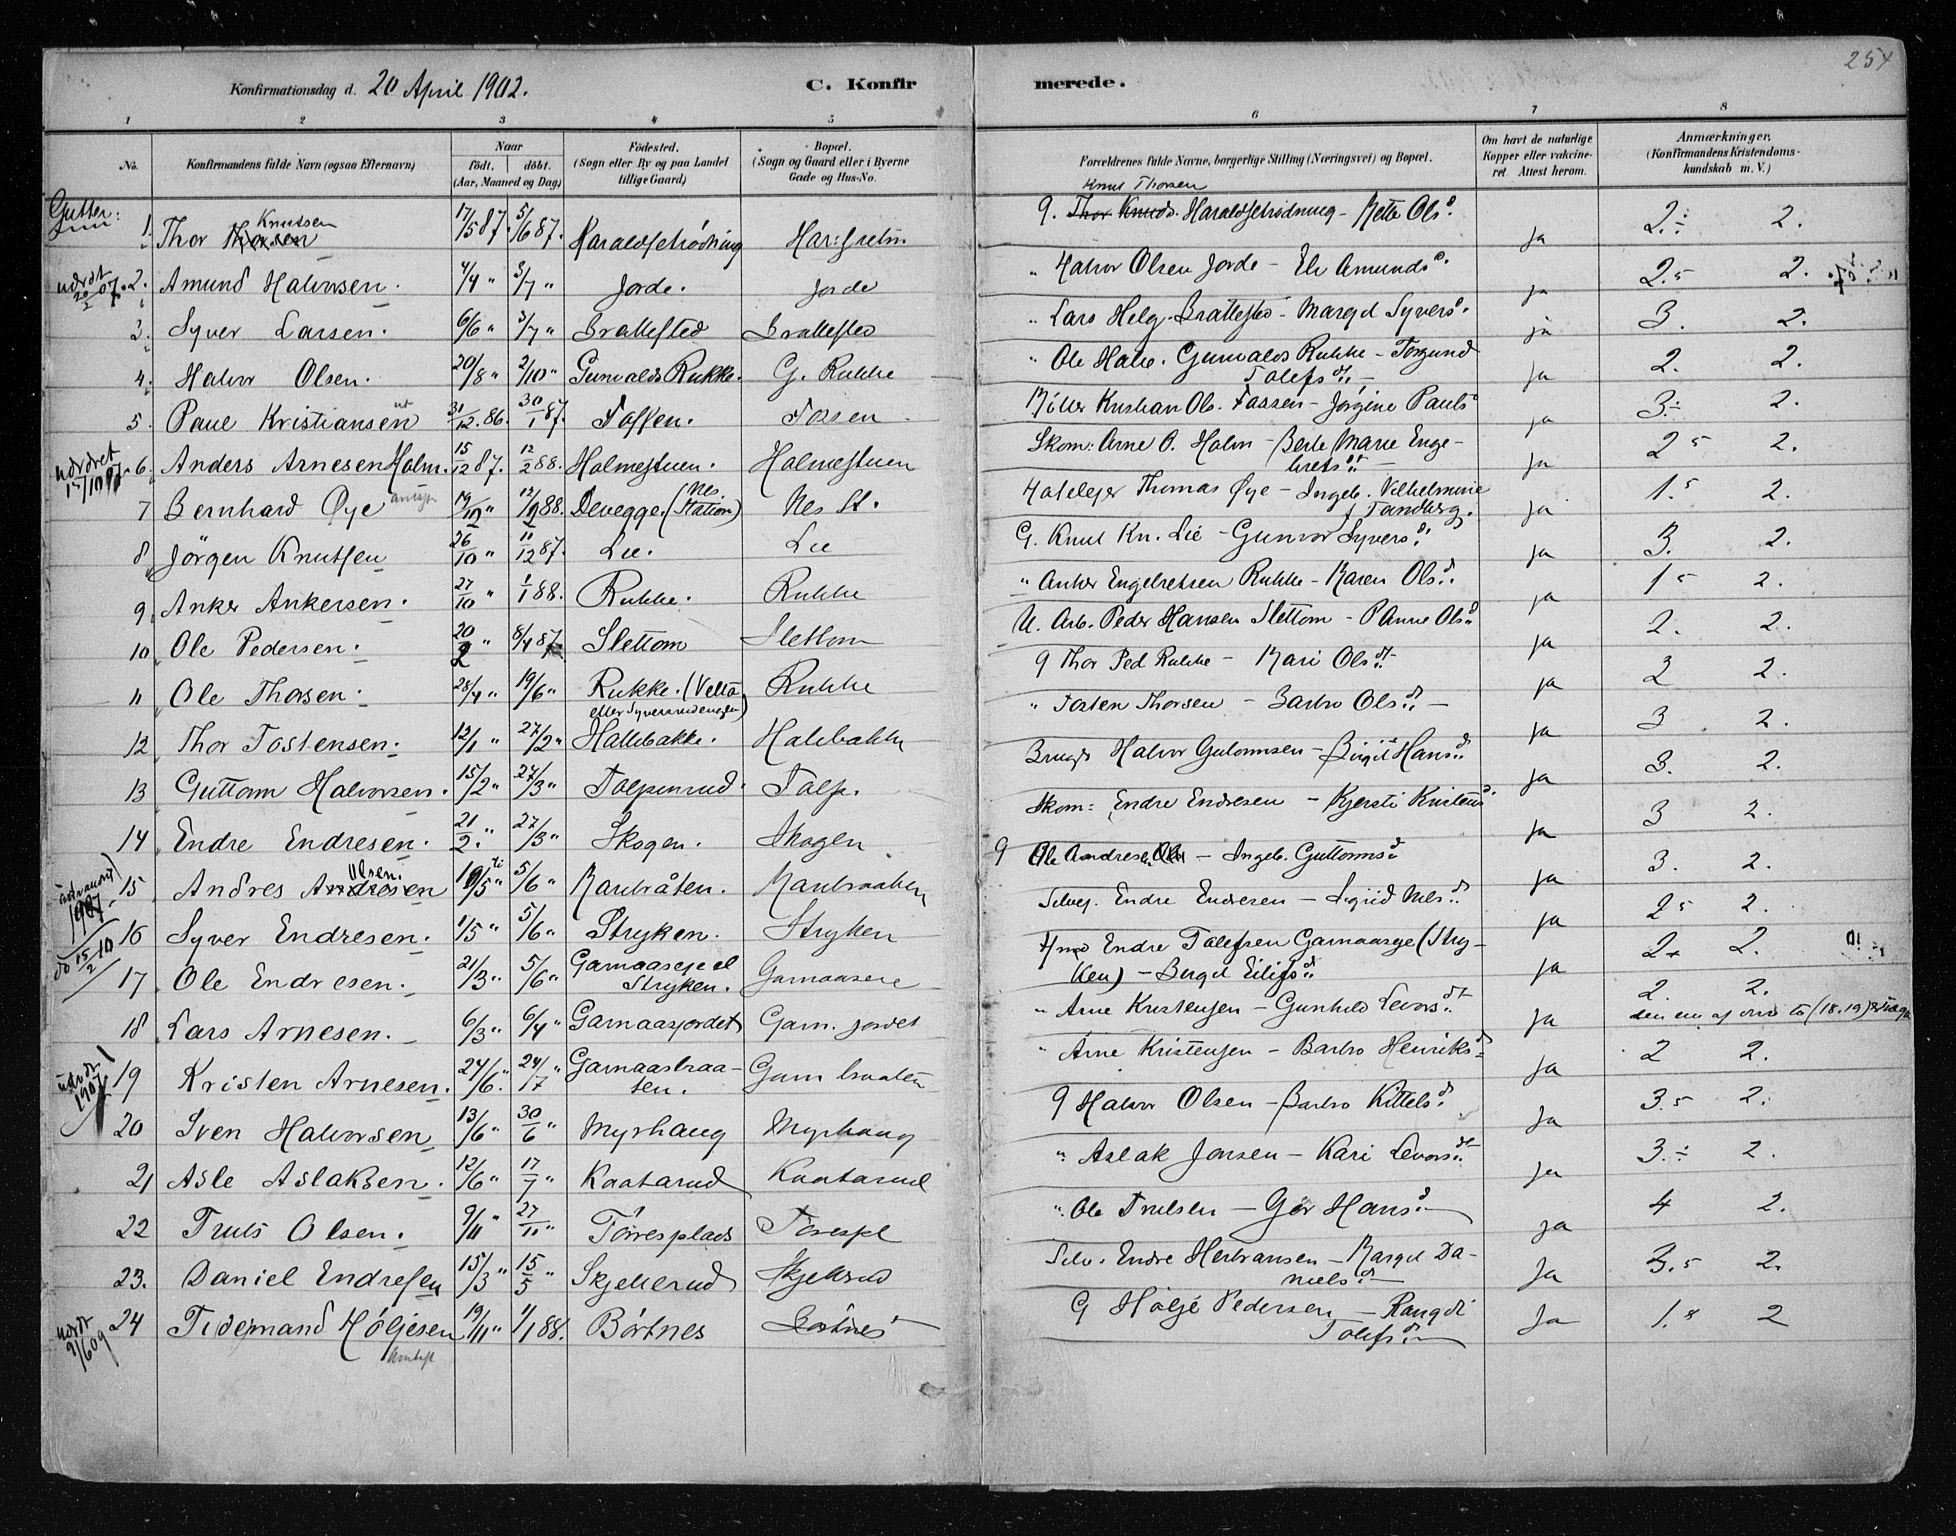 254
Konfirmationsdag d. 20 April 1902. C. Konfirmerede.
1 2 3 4 5 6 7 8
No. Konfirmandens fulde Navn (ogsaa Efternavn) Naar født. døbt. (Aar, Maaned og Dag) Fødested. (Sogn eller By og paa Landet tillige Gaard) Bopæl. (Sogn og Gaard eller i Byerne Gade og Hus-No. Forældrenes fulde Navne, borgerlige Stilling (Næringsvei) og Bopæl. Om havt de naturlige Kopper eller vakcineret. Attest herom. Anmærkninger. (Konfirmandens Kristendomskundskab m. V.)
Gutter:
Knutsen Knut Thorsen
1. Thor Thorsen 17/5 87. 5/6 87. Haraldsetrödning G. Thor Knuds. Haraldsetrödning - Mette Olsd. ja 2.÷ 2.
2. Amund Halvorsen. 4/4 " 3/7 " Jorde. Jorde " Halvor Olsen Jorde - Eli Amundsd. ja 2.5 2.
3. Syver Larsen. 6/6 " 3/7 " Brattested Brattested " Lars Helg. Brattested - Margit Syversd. ja 3. 2.
4. Halvor Olsen. 20/8 " 2/10 " Gunvalds Rukke. G. Rukke " Ole Halv. Gunvalds Rukke - Torgund Tolefsdt. ja 2. 2.
5. Paul Kristiansen 31/12.86. 30/1 87. Fossen. Fossen Möller Kristian Ol. Fossen - Jörgine Paulsd ja 3.÷ 2.
6. Anders Arnesen Holm. 15/12 87. 12/2 88. Holmestuen. Holmestuen Skom: Arne O. Holm - Berte Marie Engebretsdt. ja 2 5 2.
7 Bernhard Øye 19/12 " 12/2 88. Devegge. (Nes Station) Nes St. Hotelejer Thomas Øye - Ingeb. Vilhelmine f Tandberg. ja 1.5 2.
8 Jörgen Knutsen 26/10 " 11/12 87. Lie. Lie G. Knut Kn. Lie - Gunvor Syversd. ja 3. 2.
9. Anker Ankersen. 27/10 " 1/1 88. Rukke. Rukke " Anker Engebretsen Rukke - Karen Olsd. ja 1 5 2.
10. Ole Pedersen. 20/2 " 8/4 87 Slettom Slettom U. Arb. Peder Hansen Slettom - Anne Olsd ja 2. 2.
11 Ole Thorsen. 28/4 " 19/6 " Rukke. (Velta eller Syversrudengen) Rukke G Thor Ped Rukke - Kari Olsdt. ja 2 2.
12 Thor Tostensen. 12/1 " 27/2 " Hallebakke. Halebakke " Tosten Thorsen - Barbro Olsd. ja 3 2.
13 Guttorm Halvorsen. 15/2 " 27/3 " Tolpenrud. Tolp. Brugs Halvor Gutormsen - Birgit Hansd. ja 3. 2.
14 Endre Endresen. 21/2. " 27/3 " Skogen. Skogen Skom: Endre Endresen - Kjersti Kristensd. ja 3 2.
Olsen.
15 Andres Andresen 19/5 " 5/6 " Raubråten. Raubraaten G Ole Andresen - Ingeb. Guttormsd. ja 3. 2.
16 Syver Endresen. 1/5 " 5/6 " Stryken. Stryken Selvej. Endre Endresen - Sigrid Nelsd. ja 2 5 2.
17. Ole Endresen. 21/3 " 5/6 " Garnaaseje el Stryken. Garnaaseie Hmd Endre Tolefsen Garnaaseje (Stryken) - Bergit Eilifsd. ja 2 2.
18 Lars Arnesen. 6/3 " 6/4 " Garnaasjordet Garn. jordet " Arne Kristensen - Gunhild Levorsdt. ja 2. 2.
19 Kristen Arnesen. 24/6. " 24/7 " Garnaasbraaten. Garn braaten " Arne Kristensen - Barbro Henriksd. ja 2 2.
20 Sven Halvorsen 13/6 " 30/6 " Myrhaug Myrhaug G Halvor Olsen - Barbro Kittelsd. ja 3.5 2.
21 Asle Aslaksen. 12/6 " 17/7 " Kaatarud Kaatarud " Aslak Jonsen - Kari Levorsdt. ja 3.÷ 2.
22 Truls Olsen. 9/11 " 27/11 " Törresplads Törrespl " Ole Trulsen - Gör Hansd. ja 4 2.
23. Daniel Endresen 15/3 " 15/5 " Skjellerud Skjellerud Selv. Endre Herbransen - Margit Danielsd. ja 3.5 2.
24 Tidemand Höljesen 19/11 " 1/1 88. Börtnes Börtnes G Hölje Pedersen - Rangdi Tolefsd. ja 1.8 2